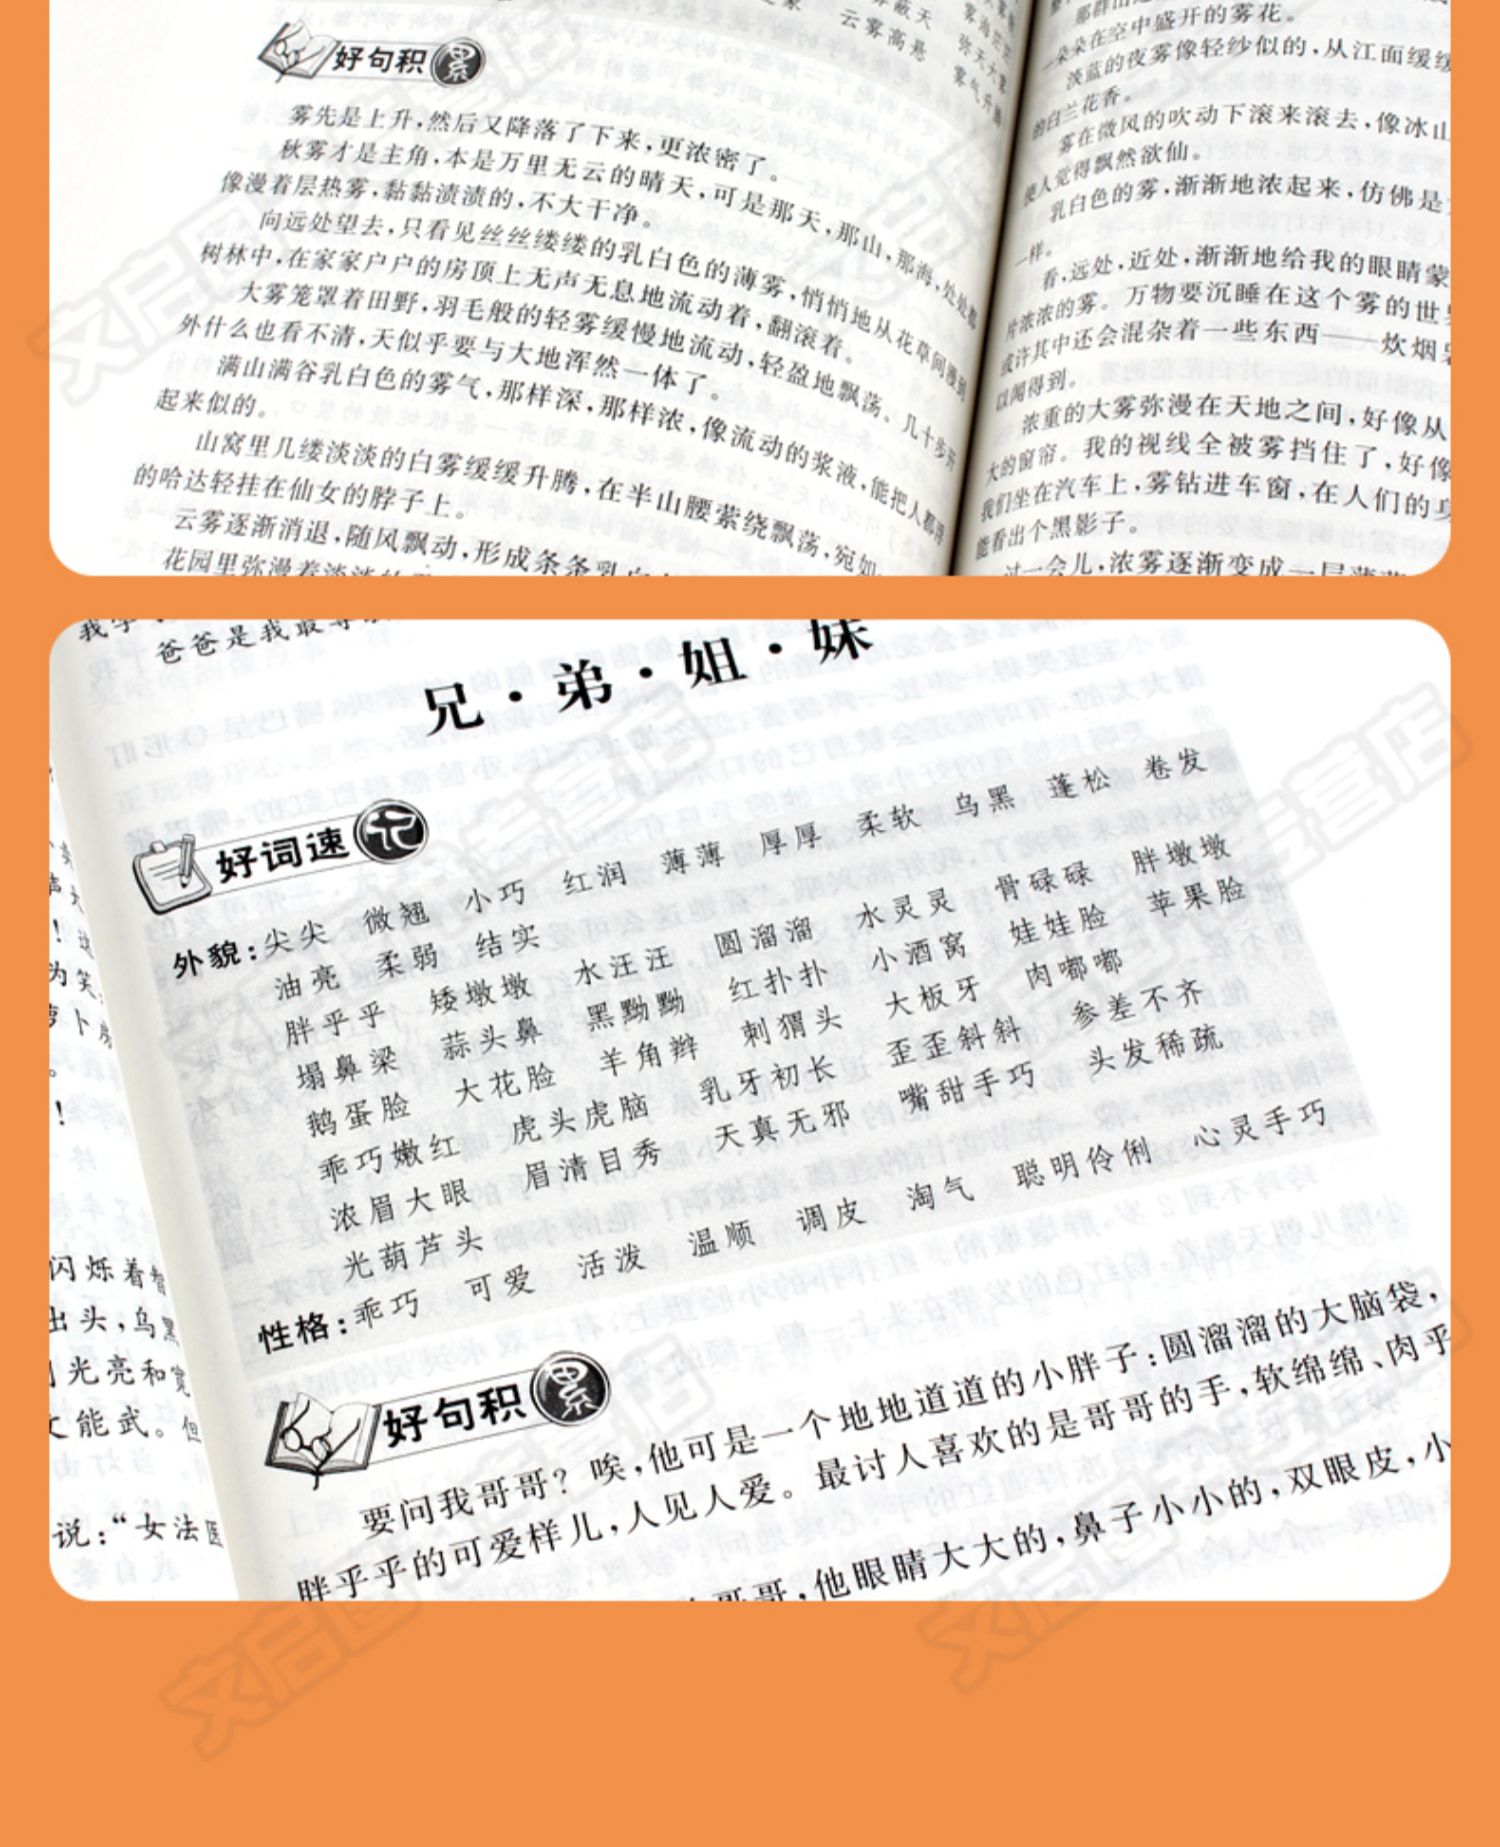 蔽天
云雾高悬
雾海茫茫
弥天大雾
雾气升腾
好句积累
雾先是上升,然后又降落了下来,更浓密了。
秋雾才是主角,本是万里无云的晴天,可是那天,那山,那海,处处都
像漫着层热雾,黏黏渍渍的,不大干净。
向远处望去,只看见丝丝缕缕的乳白色的薄雾,悄悄地从花草间漫到
树林中,在家家户户的房顶上无声无息地流动着,翻滚着。
大雾笼罩着田野,羽毛般的轻雾缓慢地流动,轻盈地飘荡。几十步开
外什么也看不清,天似乎要与大地浑然一体了。
满山满谷乳白色的雾气,那样深,那样浓,像流动的浆液,能把人都浮
起来似的。
山窝里几缕淡淡的白雾缓缓升腾,在半山腰萦绕飘荡,宛如
的哈达轻挂在仙女的脖子上。
云雾逐渐消退,随风飘动,形成条条乳白
花园里弥漫着淡淡的
那群山
一朵朵在空中盛开的雾花。
淡蓝的夜雾像轻纱似的,从江面缓缓
的白兰花香。
雾在微风的吹动下滚来滚去,像冰山
使人觉得飘然欲仙。
乳白色的雾,渐渐地浓起来,仿佛是
一样。
看,远处,近处,渐渐地给我的眼睛蒙
片浓浓的雾。万物要沉睡在这个雾的世界
或许其中还会混杂着一些东西——炊烟袅
以闻得到。
浓重的大雾弥漫在天地之间,好像从
大的窗帘。我的视线全被雾挡住了,好像
我们坐在汽车上,雾钻进车窗,在人们的身
能看出个黑影子。
过一会儿,浓雾逐渐变成一层薄薄
爸爸是我最尊
兄·弟·姐·妹
好词速记
外貌:尖尖 微翘 小巧 红润 薄薄 厚厚 柔软 乌黑 蓬松 卷发
油亮 柔弱 结实 水汪汪 圆溜溜 水灵灵 骨碌碌 胖墩墩
胖乎乎 矮墩墩 黑黝黝 红扑扑 小酒窝 娃娃脸 苹果脸
塌鼻梁 蒜头鼻 羊角辫 刺猬头 大板牙 肉嘟嘟
鹅蛋脸 大花脸 虎头虎脑 乳牙初长 歪歪斜斜 参差不齐
乖巧嫩红 眉清目秀 天真无邪 嘴甜手巧 头发稀疏
浓眉大眼
光葫芦头
性格:乖巧 可爱 活泼 温顺 调皮 淘气 聪明伶俐 心灵手巧
好句积累
要问我哥哥?唉,他可是一个地地道道的小胖子:圆溜溜的大脑袋,
胖乎乎的可爱样儿,人见人爱。最讨人喜欢的是哥哥的手,软绵绵、肉乎
哥哥,他眼睛大大的,鼻子小小的,双眼皮,小
闪烁着智
出头,乌黑
光亮和宽
能武。但
说:“女法医